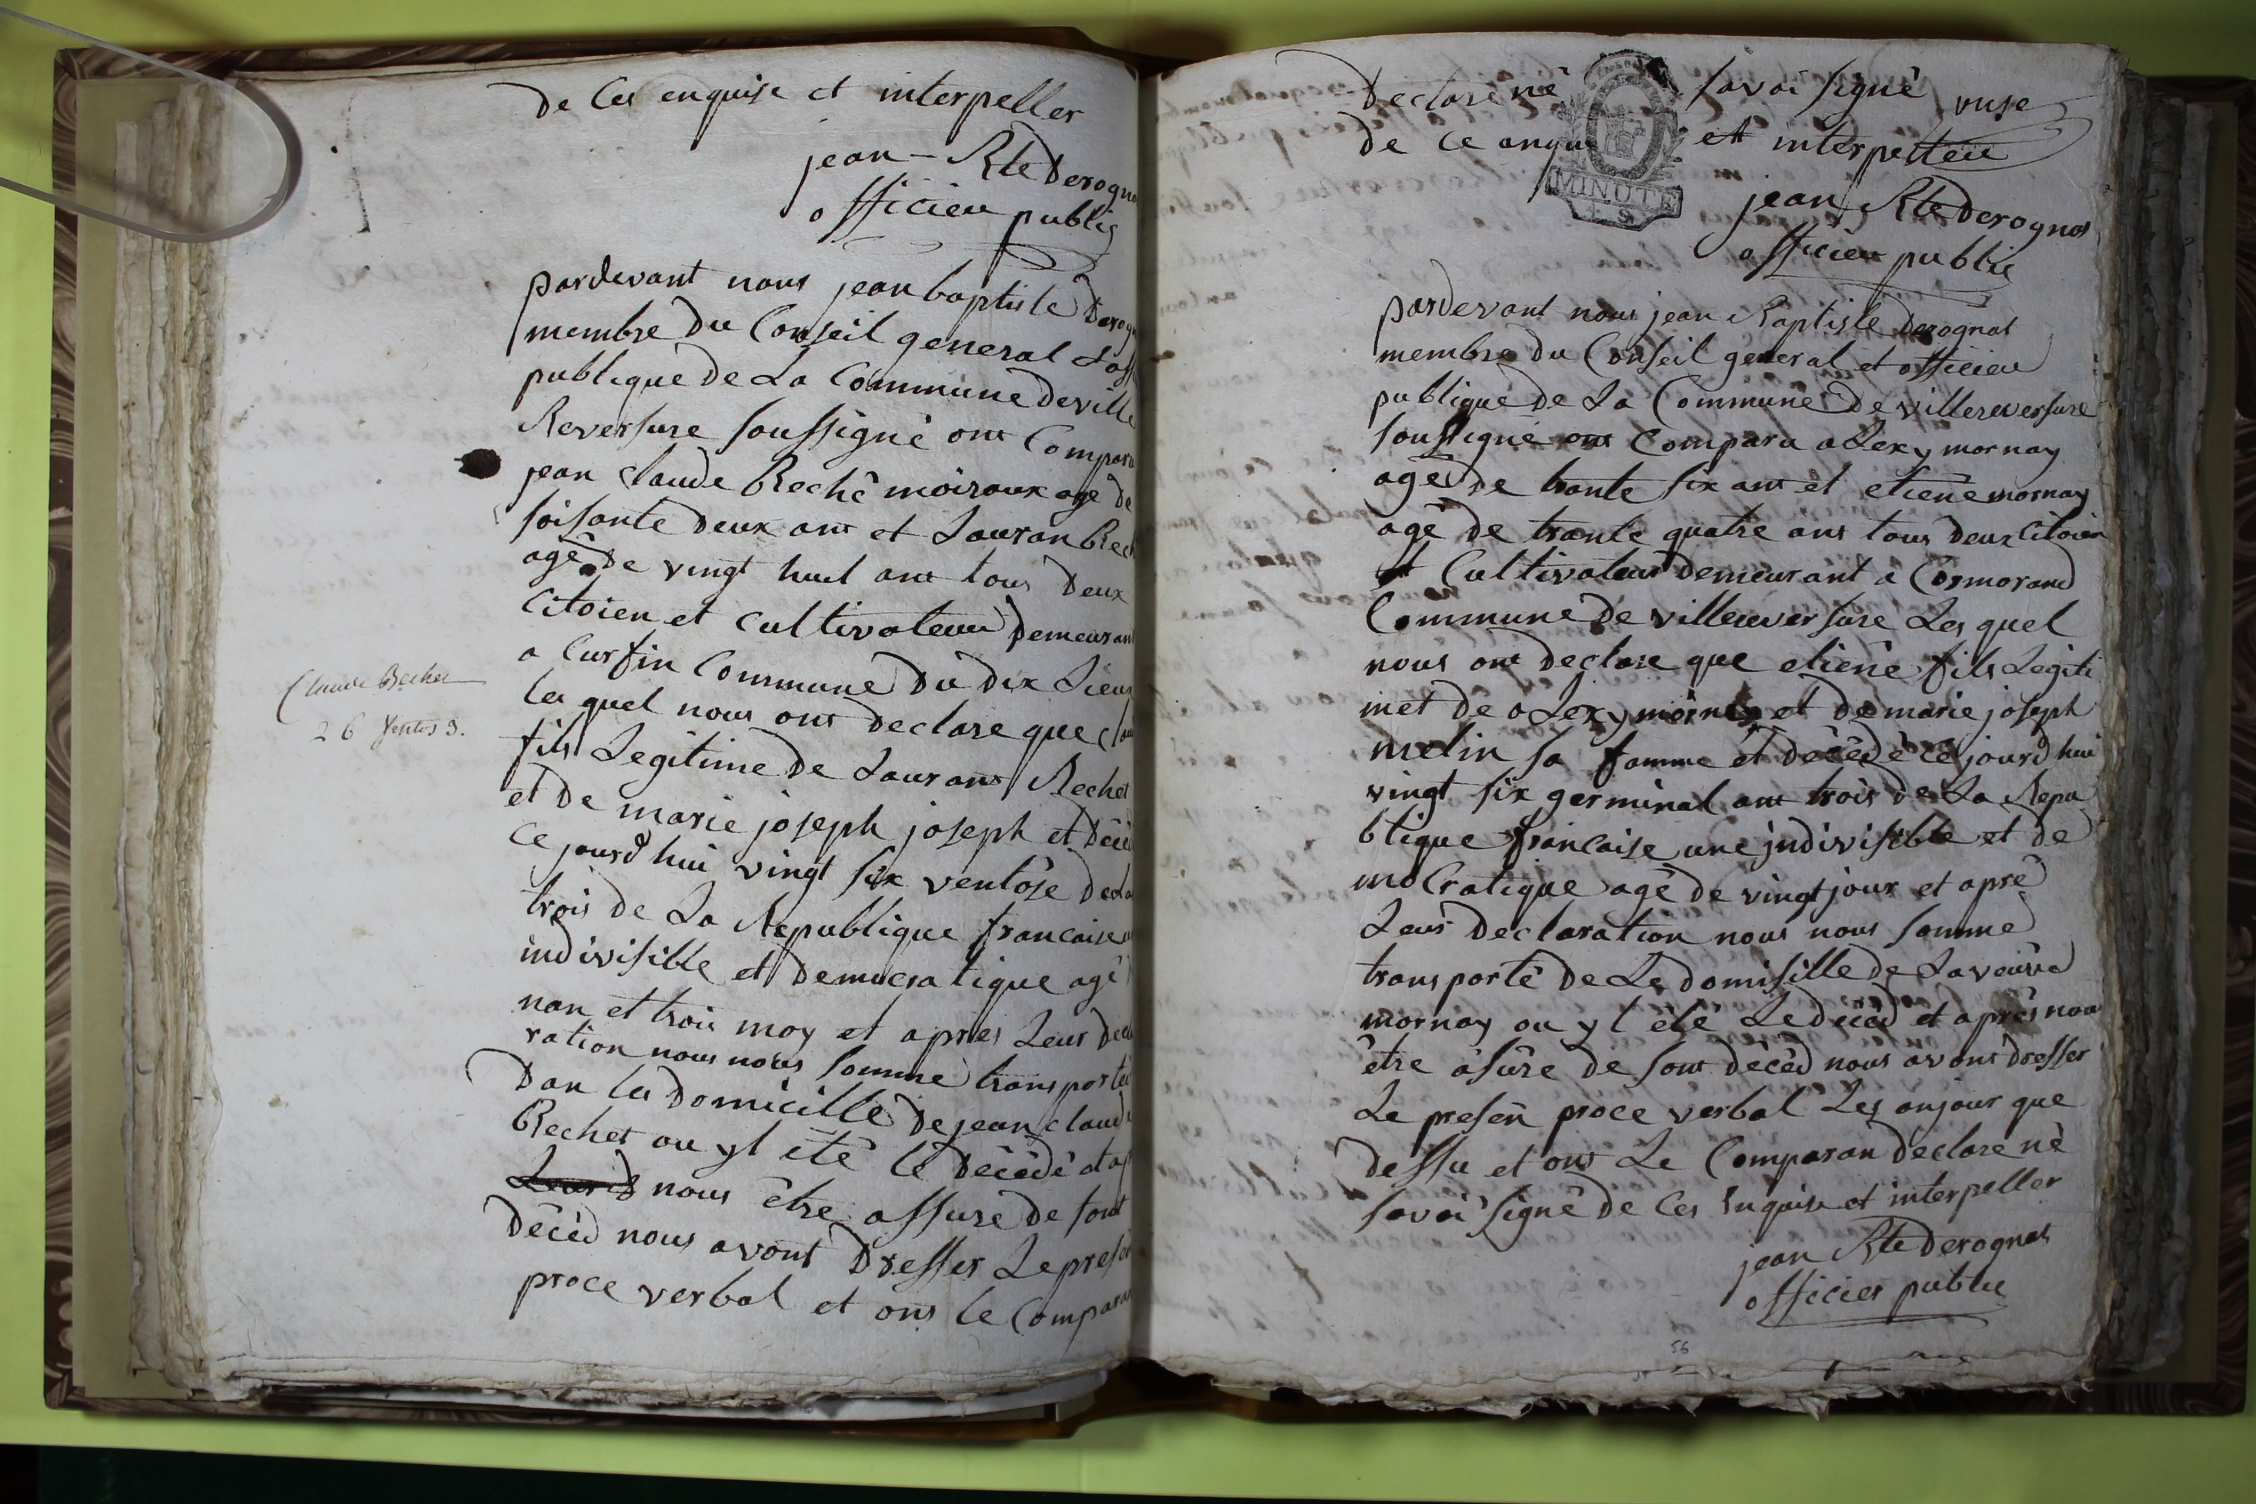 de Ces enquise et interpeller
jean - Bte Derogna
officieu public
pardevant nous jean baptiste Derogn
membre du Conseil general & off
publique de La Commune de ville
Reversure soussigné ont Compara
jean Claude Beché moiraux agé de
soisante deux ant et Lauran Bech
agé de vingt huit ant tous deux
Citoien et Cultivateur demeurant
a Curfin Commune du dix Lieux
les quel nous ont declare que Clau
fils Legitime de Laurant Bechet
et de marie joseph joseph et Décéd
Ce jourd hui vingt six ventôse de La
trois de La Republique francaise
indivisible et democratique agé
nan et trois moy et apres Leur Decla
ration nous nous somme transporté
Dan les Domicille de jean claude
Bechet ou yl eté le Décédé et ap
nous étre assure de sont
Décéd nous avont Dresser Le presen
proce verbal et ons le Comparan
Claude Bechet
26 Ventos 3.
Declare né savoi signé
de ce anqu et interpelleu
MINUTE
jean Bte Derognat
officieu public
pardevant nous jean Baptiste Derognat
membre du Conseil general et officieu
publique de La Commune de villereversure
soussigné ont Compara aLexy mornay
agé de trante six ant et etiene mornay
agé de trante quatre ans tous deux Citoien
et Cultivateur demeurant a Cormorand
Commune de villereversure Les quel
nous ont declare que etiène fils Legiti
met de aLexy mornay et de marie joseph
melin sa famme et décédé ce jourd hui
vingt six germinal ant trois de La Repu
blique francaise une jndivisible et de
mocratique agé de vingt jour et apré
Leur declaration nous nous somme
transporté de Le domisille de La veuve
mornay ou yl été Le décéd et aprés nous
être asûre de sont décéd nous avont dresser
Le presen proce verbal Les anjour que
dessu et ont Le Comparan declare né
savoi signé de Ces Enquise et interpeller
jean Bte Derognat
officier public
56